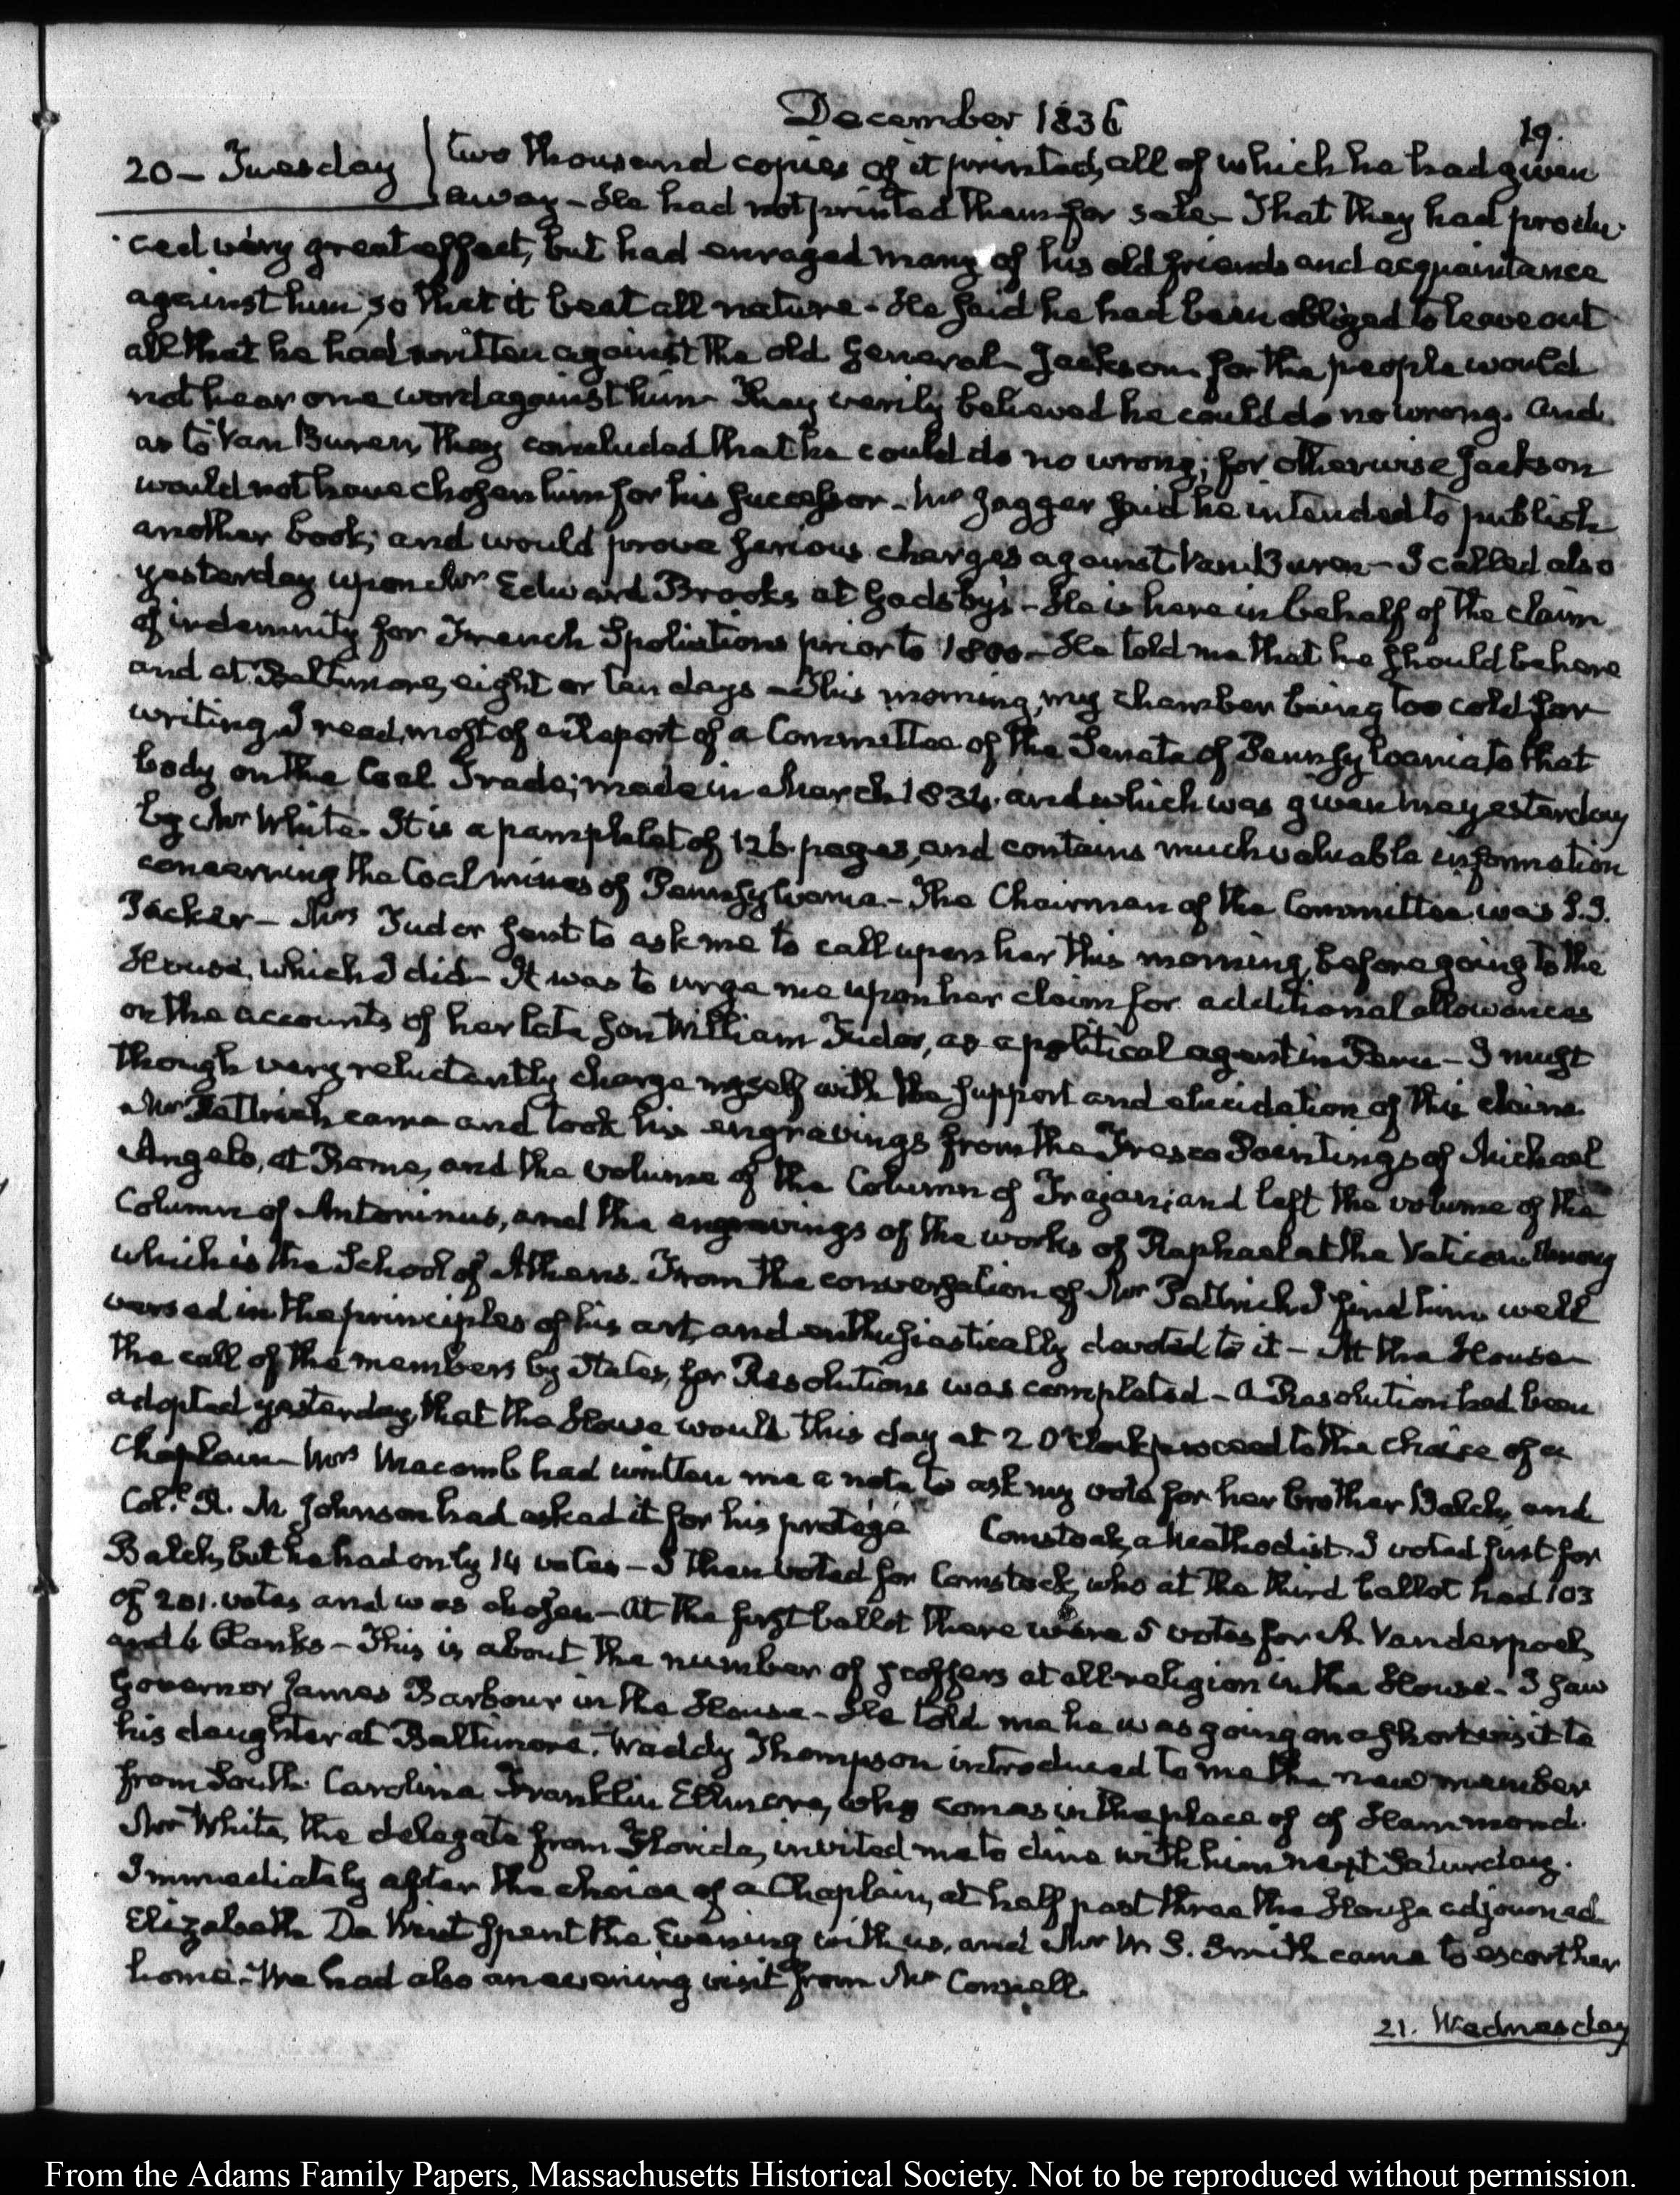 December 1836
19.
20 – Tuesday
two thousand copies of it printed, all of which he had given
away – He had not printed them for sale – That they had produ-
ced very great effect, but had enraged many of his old friends and acquaintance
against him, so that it beat all nature – He said he had been obliged to leave out
all that he had written against the old General Jackson for the people would
not hear one word against him – They verily believed he could do no wrong. And
as to Van Buren, they concluded that he could do no wrong; for otherwise Jackson
would not have chosen him for his successor – Mr Jagger said he intended to publish
another book; and would prove serious charges against Van Buren – I called also
yesterday upon Mr Edward Brooks at Gadsby's – He is here in behalf of the claim
of indemnity for French Spoliations prior to 1800 – He told me that he should be here
and at Baltimore, eight or ten days – This morning, my chamber being too cold for
writing I read most of a Report of a Committee of the Senate of Pennsylvania to that
body on the Coal Trade; made in March 1834. and which was given me yesterday
by Mr White. It is a pamphlet of 126 pages, and contains much valuable information
concerning the Coal mines of Pennsylvania – The Chairman of the Committee was S. J.
Packer – Mrs Tudor sent to ask me to call upon her this morning, before going to the
House, which I did – It was to urge me upon her claim for additional allowances
on the accounts of her late son William Tudor, as a political agent in Peru – I must
though very reluctantly charge myself with the support and elucidation of this claim.
Mr Pettrich came and took his engravings from the Fresco Paintings of Michael
Angelo, at Rome, and the volume of the Column of Trajan; and left the volume of the
Column of Antoninus, and the engravings of the works of Raphael at the Vatican among
which is the School of Athens. From the conversation of Mr Pettrich I find him well
versed in the principles of his art, and enthusiastically devoted to it – At the House
the call of the members by States, for Resolutions was completed – A Resolution had been
adopted yesterday, that the House would this day at 2 O'Clock proceed to the choice of a
Chaplain – Mrs Macomb had written me a note to ask my vote for her brother Balch, and
Col. R. M. Johnson had asked it for his protégé Comstock, a Methodist. I voted first for
Balch, but he had only 14 votes – I then voted for Comstock, who at the third ballot had 103
of 201. votes and was chosen – At the first ballot there were 5 votes for A. Vanderpoel,
and 6 blanks – This is about the number of scoffers at all religion in the House – I saw
Governor James Barbour in the House – He told me he was going on a short visit to
his daughter at Baltimore. Waddy Thompson introduced to me the new member
from South Carolina Franklin Elmore, who comes in the place of of Hammond.
Mr White, the delegate from Florida, invited me to dine with him next Saturday.
Immediately after the choice of a Chaplain, at half past three the House adjourned
Elizabeth De Wint spent the Evening with us, and Mr M S. Smith came to escort her
home. We had also an evening visit from Mr Connell.
21. Wednesday
From the Adams Family Papers, Massachusetts Historical Society. Not to be reproduced without permission.